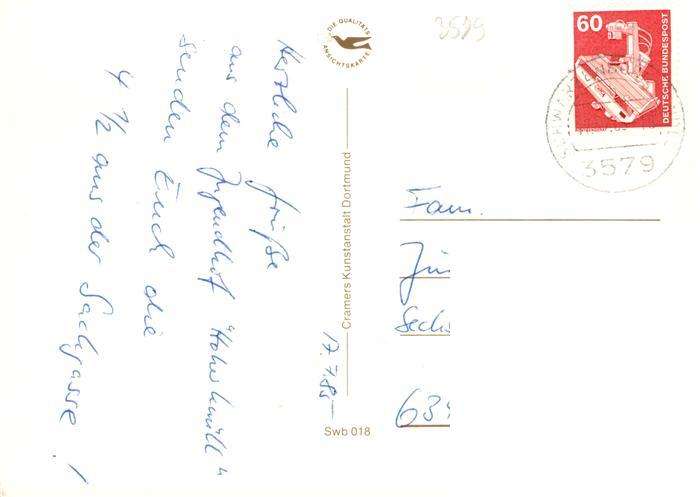 Herzliche Grüße
aus dem Jugendhof "Hohe
senden Euch die
4 1/2 aus der Sackgasse!
17.7.85
DIE QUALITÄTS
ANSICHTSKARTE
Cramers Kunstanstalt Dortmund
Swb 018
3579
60
DEUTSCHE BUNDESPOST
3579
Fam.